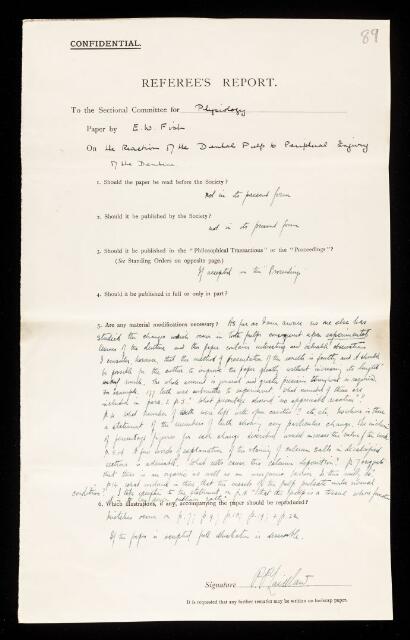 89
CONFIDENTIAL.
REFEREE'S REPORT.
To the Sectional Committee for Physiology
Paper by E. W. Fish
On the Reaction of the Dental Pulp to Peripheral Injury
of the Dentine
1. Should the paper be read before the Society?
not in its present form
2. Should it be published by the Society?
not in its present form
3. Should it be published in the "Philosophical Transactions" or the "Proceedings"?
(See Standing Orders on opposite page.)
If accepted in the Proceedings
4. Should it be published in full or only in part?
5. Are any material modifications necessary? As far as I am aware no one else has
studied the changes which occur in tooth pulps consequent upon experimental
lesions of the dentine and the paper contains interesting and valuable observations
I consider, however, that the method of presentation of the results is faulty, and it should
be possible for the author to improve the paper greatly without increasing its length
very much. The whole account is general and greater precision throughout is required
For example, 177 teeth were submitted to experiment. What number of these are
included in para. 2 p. 5? What percentage showed no appreciable reaction?
p. 6 What number of teeth were left with open cavities? etc etc Nowhere is there
a statement of the number of teeth showing any particular change. The inclusion
of percentage figures for each change described would increase the value of the work
A few words of explanation of the staining of calcium salts in decalcified
sections is advisable. What cells cause this calcium deposition? p. 7 suggests
that there is an organic as well as an inorganic
p. 14 what evidence is there that the vessels of the pulp pulsate under normal
conditions? I take exception to the statement on that the pulp is a tissue whose function
6. Which illustrations, if any, accompanying the paper should be reproduced?
If the paper is accepted full illustration is desirable.
Signature P. P. Laidlaw
It is requested that any further remarks may be written on foolscap paper.